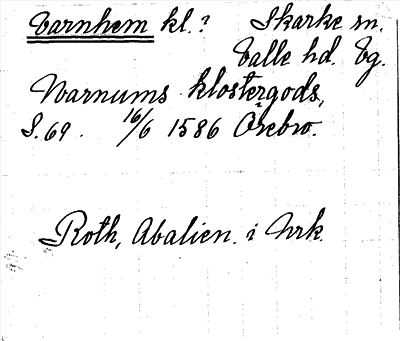 Varnhem kl.? Skarke sn.
Valle hd. Vg.
Warnums klostergods,
S. 69. 16/6 1586 Örebro.
Roth, Abalien. i Nrk.